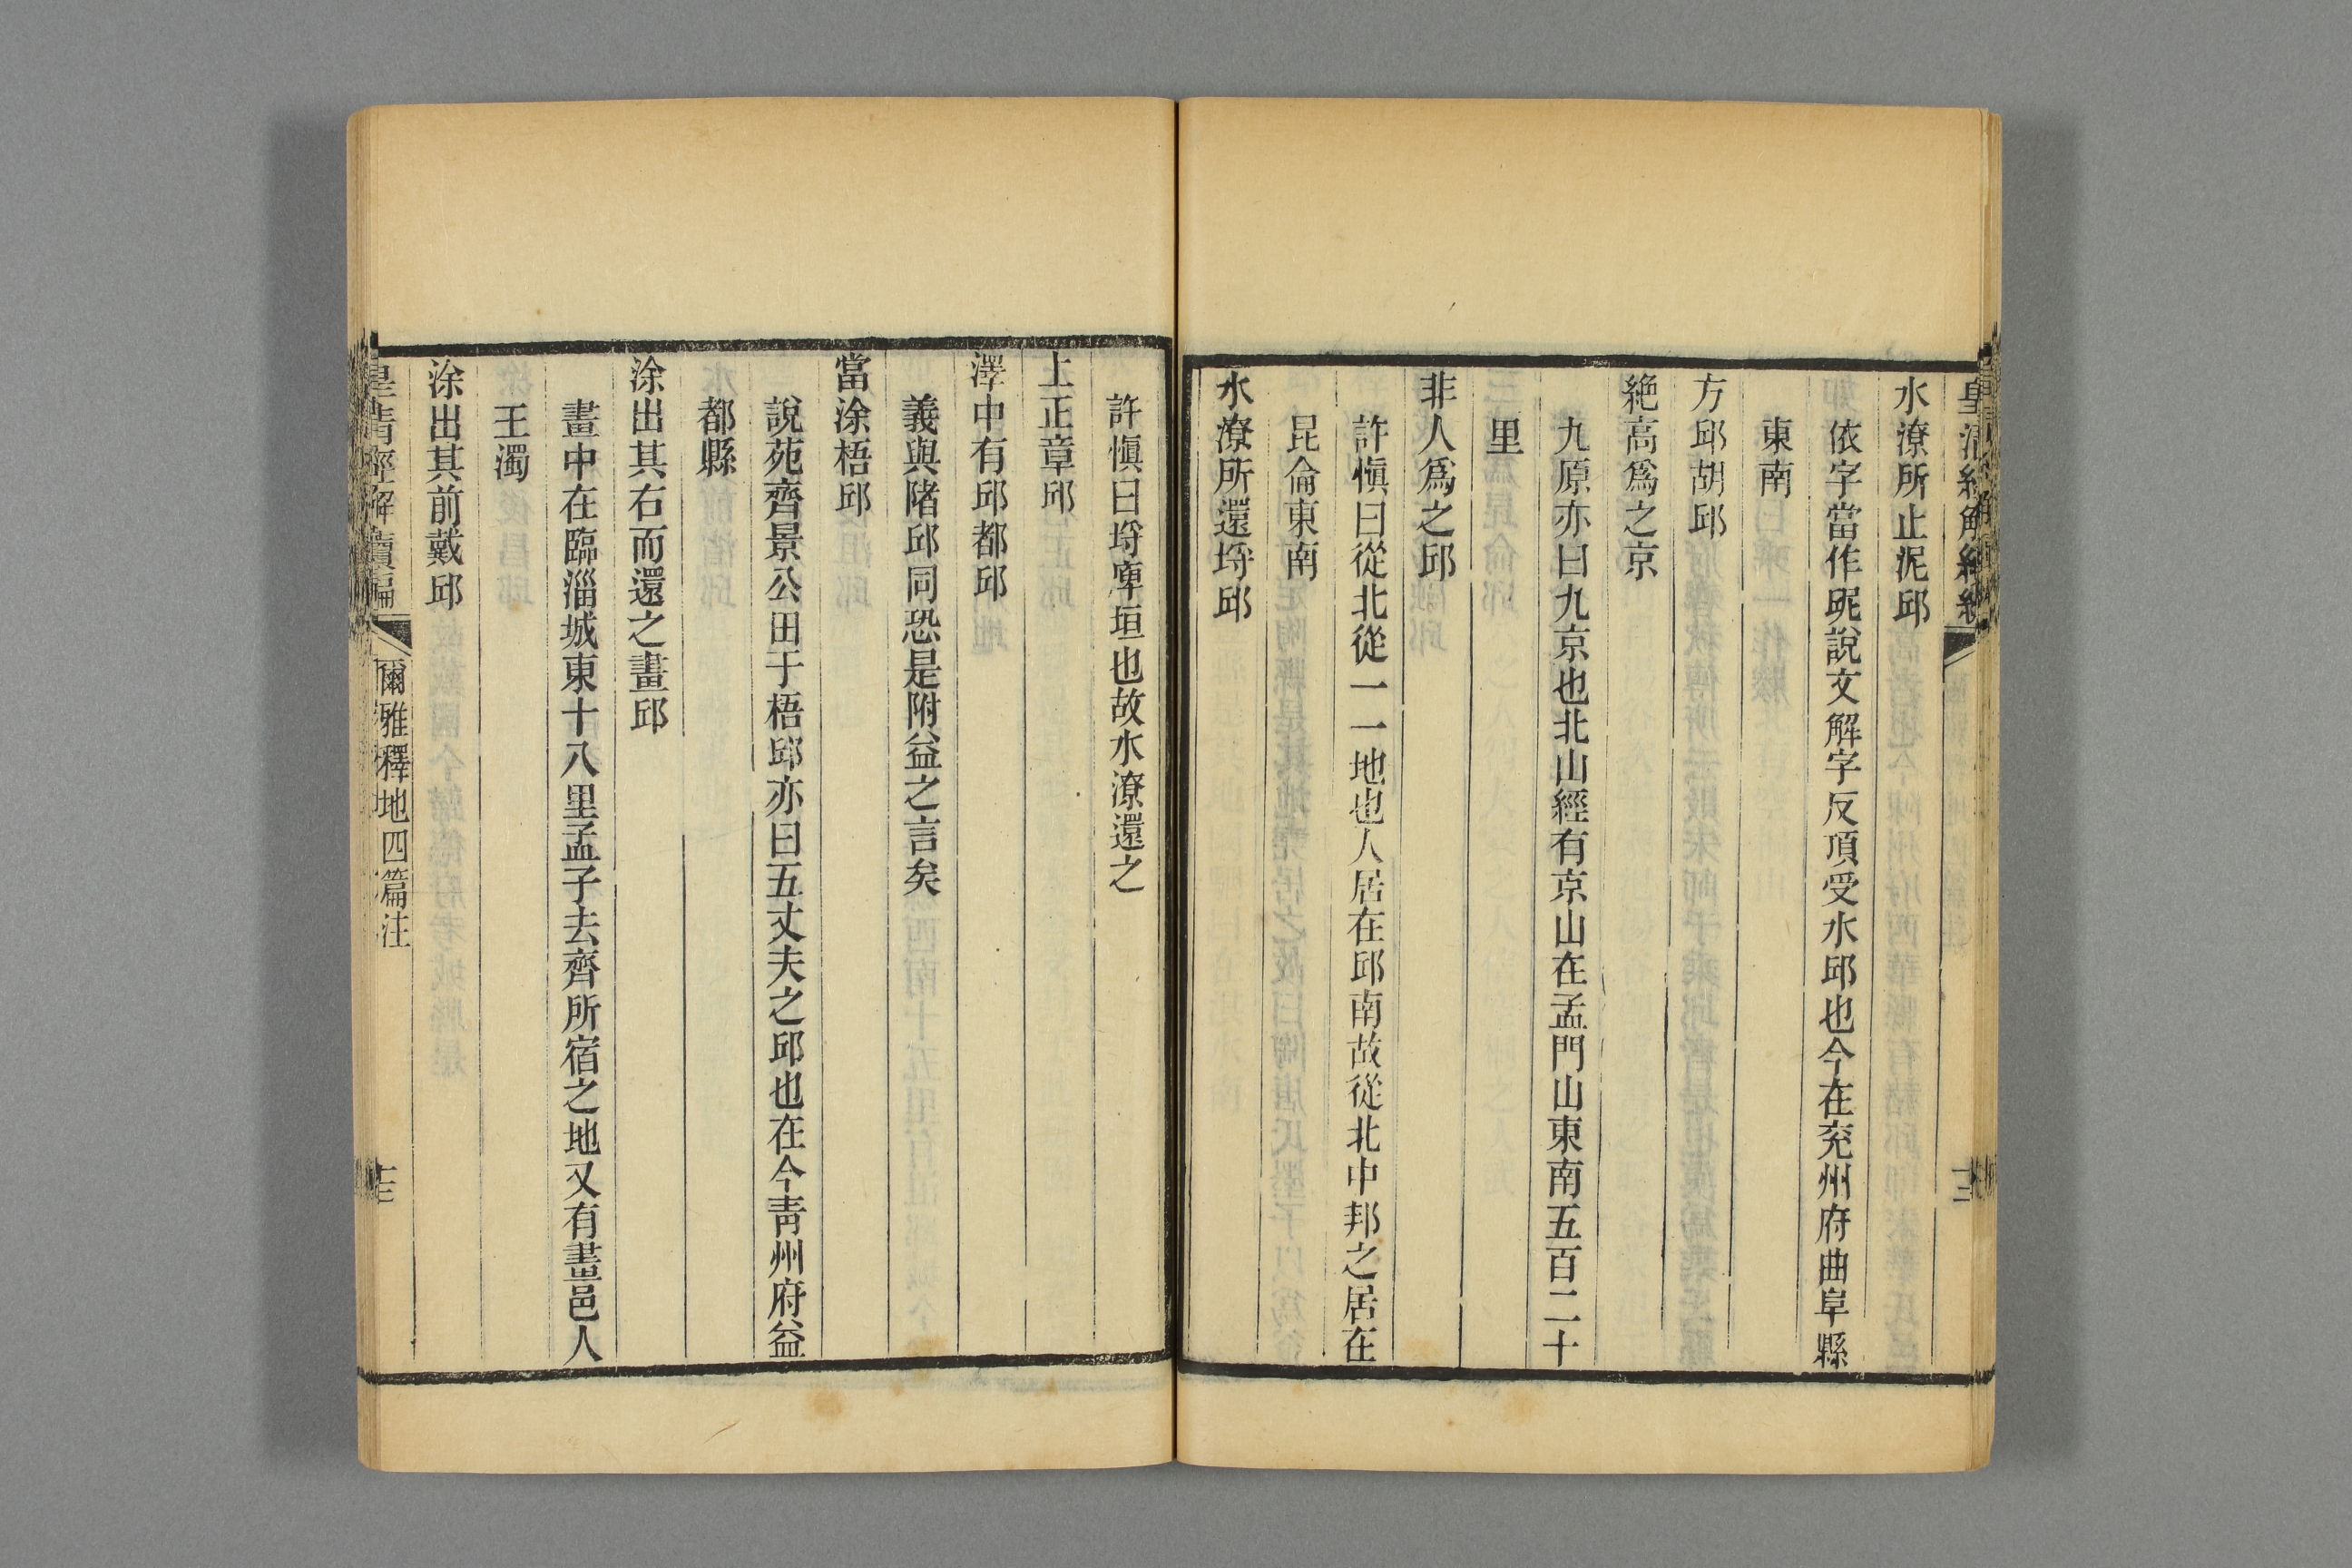 水潦所止泥邱
依字當作䛏說文解字反頂受水邱也今在兖州府曲阜縣
東南
方邱胡邱
絶高爲之京
九原亦曰九京也北山經有京山在孟門山東南五百二十
里
非人爲之邱
許愼曰從北從一一地也人居在邱南故從北中邦之居在
昆侖東南
水潦所還埒邱
許愼曰埒庳垣也故水潦還之
上正章邱
澤中有邱都邱
義與陼邱同恐是附益之言矣
當涂梧邱
說苑齊景公田于梧邱亦曰五丈夫之邱也在今靑州府益
都縣
涂出其右而還之畫邱
畫中在臨淄城東十八里孟子去齊所宿之地又有畫邑人
王濁
涂出其前戴邱
皇淸經解續編
爾雅釋地四篇注